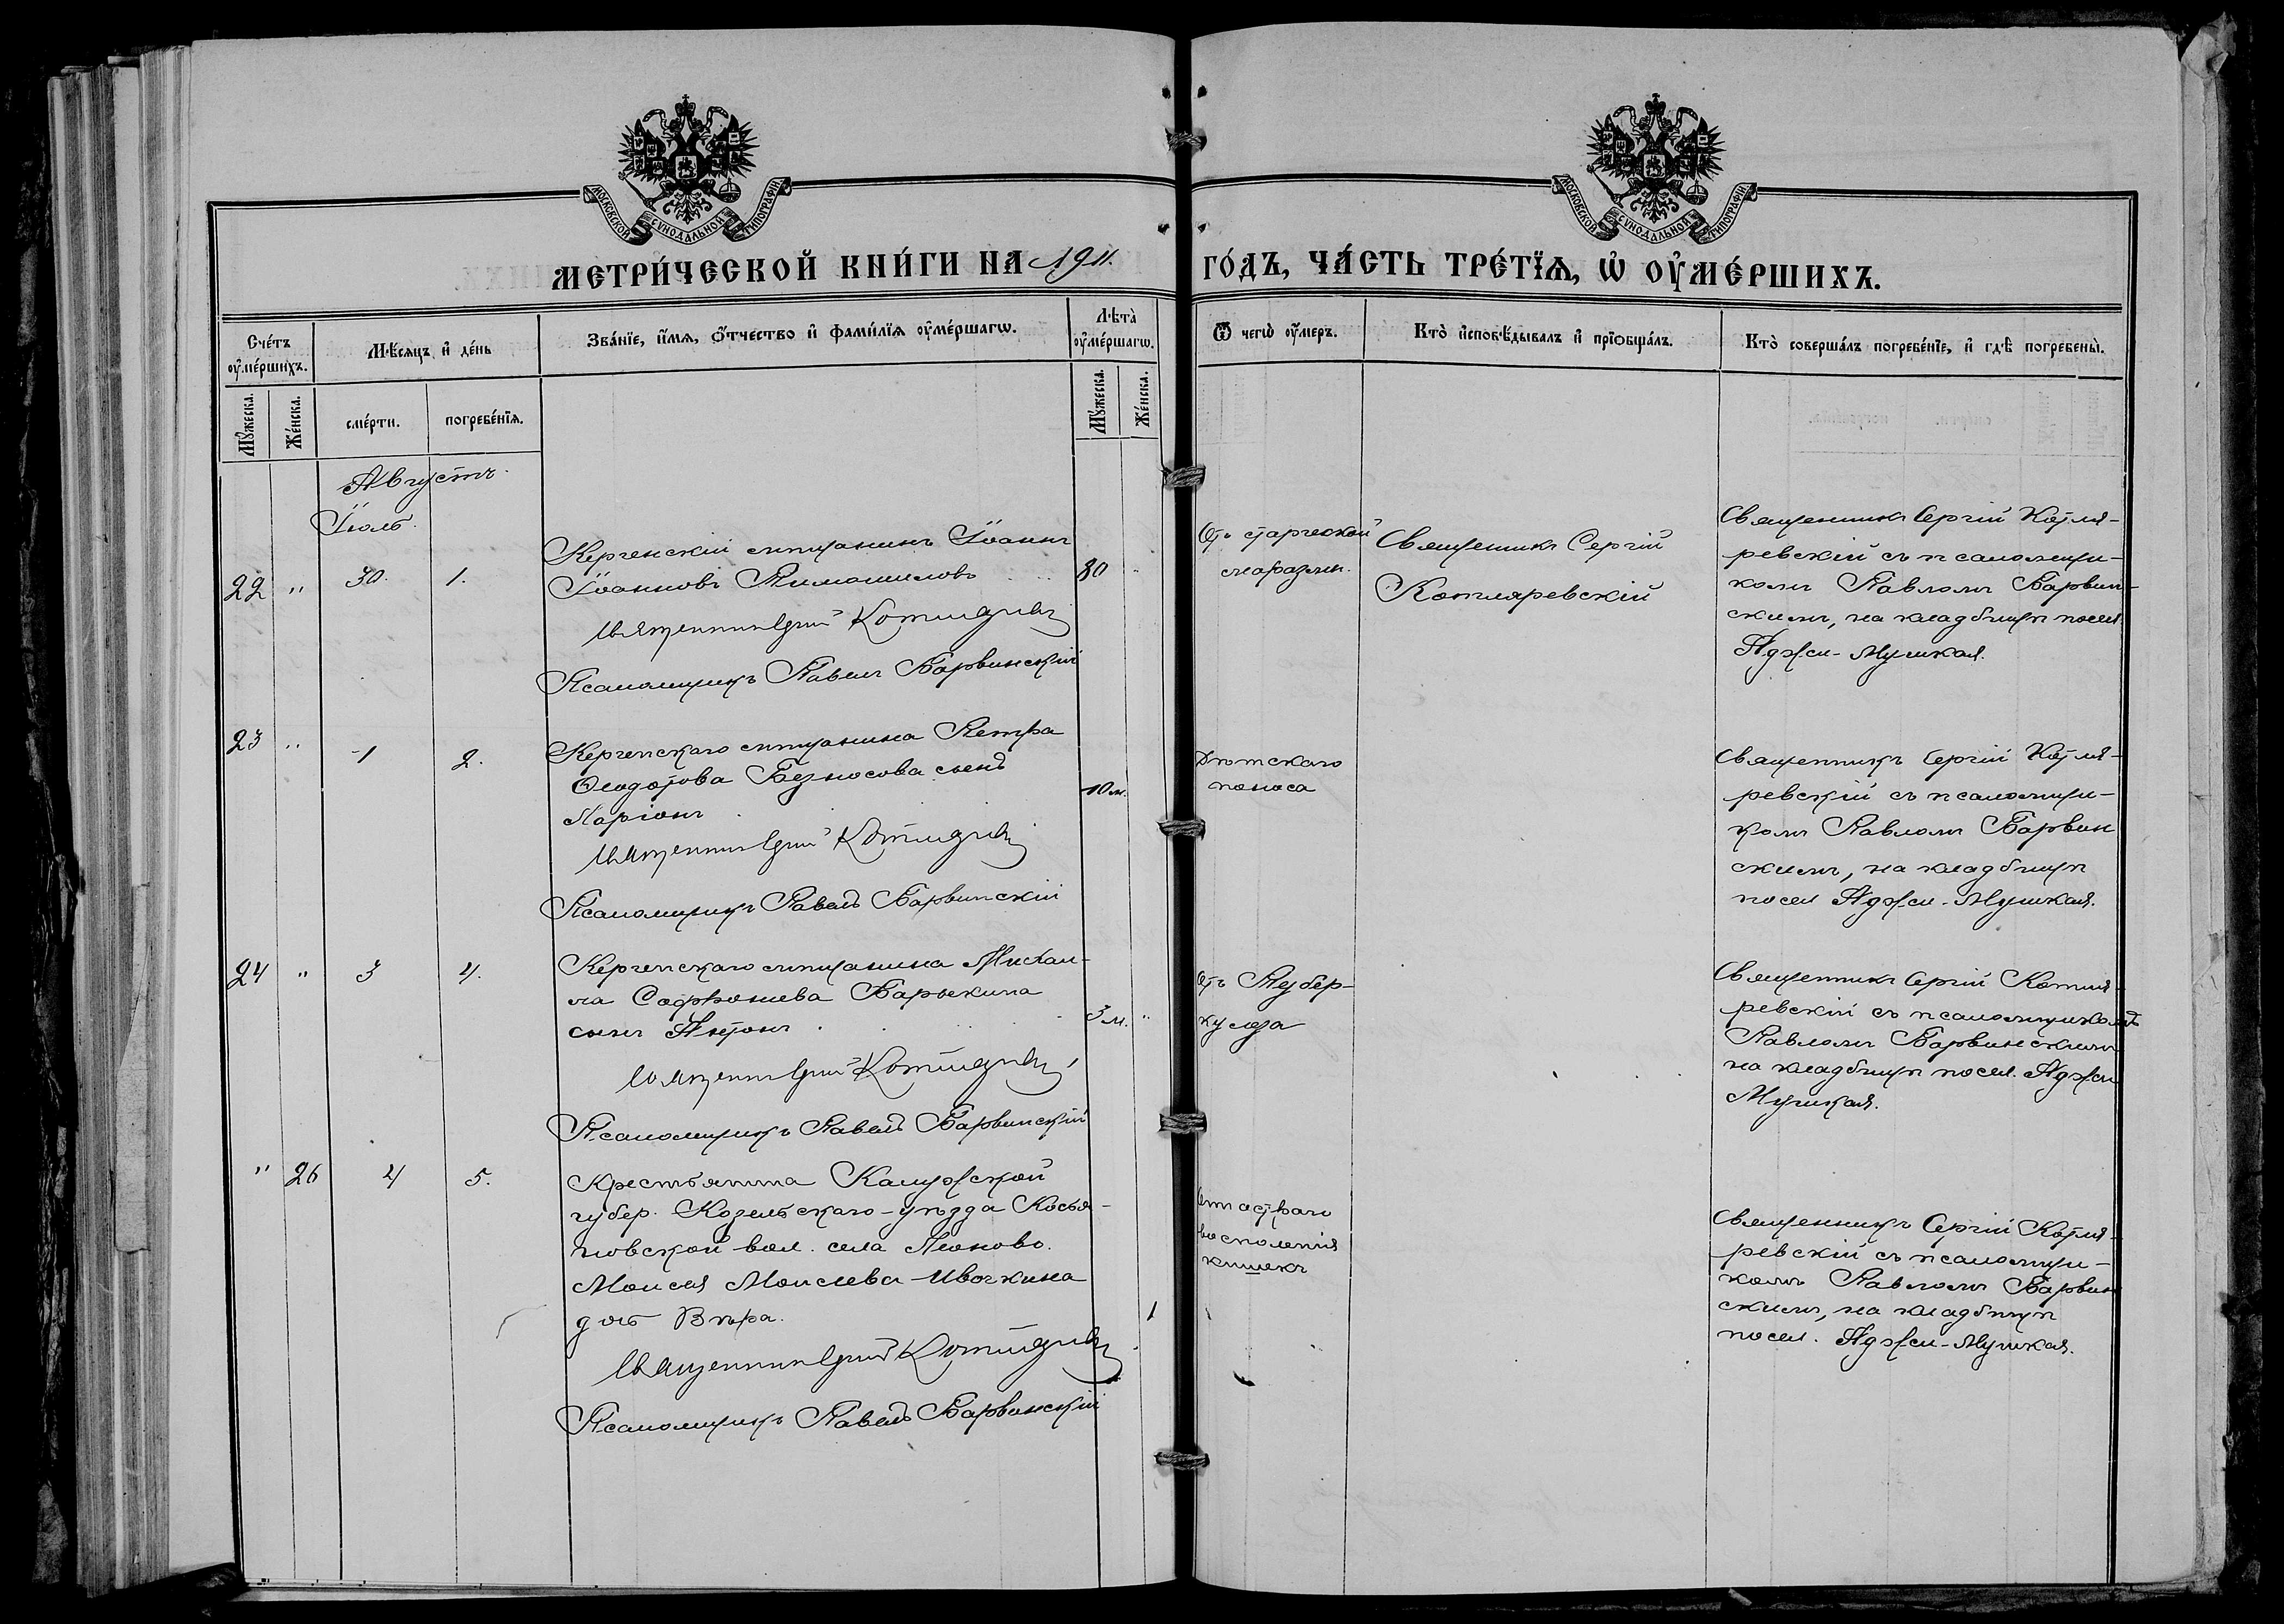 МОСКОВСКОЙ СУНОДАЛЬНОЙ ТИПОГРАФІИ
МОСКОВСКОЙ СУНОДАЛЬНОЙ ТИПОГРАФІИ
МЕТРИ́ЧЕСКОЙ КНИ́ГИ НА 1911.
ГО́ДЪ, ЧА́СТЬ ТРЕ́ТЇѦ, Ѽ ОУ҆МЕ́РШИХЪ.
Сче́тъ оу҆ме́ршихъ.
Мѣ́сѧцъ и҆ де́нь
Зва́нїе, и҆́мѧ, ѻ҆́тчество и҆ фами́лїѧ оу҆ме́ршагѡ.
Лѣта̀ оу҆ме́ршагѡ.
Ѿ чегѡ̀ оу҆́меръ.
Кто̀ и҆сповѣ́дывалъ и҆ прїѡбща́лъ.
Кто̀ соверша́лъ погребе́нїе, и҆ гдѣ̀ погребены̀.
Мꙋ́жеска.
Же́нска.
сме́рти.
погребе́нїѧ.
Мꙋ́жеска.
Же́нска.
Августъ.
Іюль.
22 " 30. 1.
Керченскій мѣщанинъ Іоаннъ
Іоанновъ 80
Священникъ Сергій Котляревскій
Псаломщикъ Павелъ Барвинскій
Отъ старческой
маразми.
Священникъ Сергій
Котляревскій
Священникъ Сергій Котля-
ревскій съ псаломщи-
комъ Павломъ Барвин-
скимъ, на кладбищѣ посел.
Аджи-Мушкая.
23 " 1 2.
Керченскаго мѣщанина Петра
Ѳеодотова Безносова сынъ
Ларіонъ 10 м.
Священникъ Сергій Котляревскій
Псаломщикъ Павелъ Барвинскій
Дѣтскаго
поноса
Священникъ Сергій Котля-
ревскій съ псаломщи-
комъ Павломъ Барвин
скимъ, на кладбищѣ
посел Аджи-Мушкая.
24 " 3 4.
Керченскаго мѣщанина Михаи-
ла Софроніева Барыкина
сынъ Антонъ 3 м. "
Священникъ Сергій Котляревскій
Псаломщикъ Павелъ Барвинскій
Отъ Тубер-
кулеза
Священникъ Сергій Котля-
ревскій съ псаломщикомъ
Павломъ Барвинскимъ
на кладбищѣ посел. Аджи
Мушкая.
" 26 4 5.
Крестьянина Калужской
губер. Козельскаго-уѣзда Косья-
новской вол. села
Моисея Моисеева Ивочкина
дочь Вѣра. 1
Священникъ Сергій Котляревскій
Псаломщикъ Павелъ Барвинскій
Отъ остраго
восполенія
кишекъ
Священникъ Сергій Котля-
ревскій съ псаломщи-
комъ Павломъ Барвин
скимъ, на кладбищѣ
посел. Аджи-Мушкая.